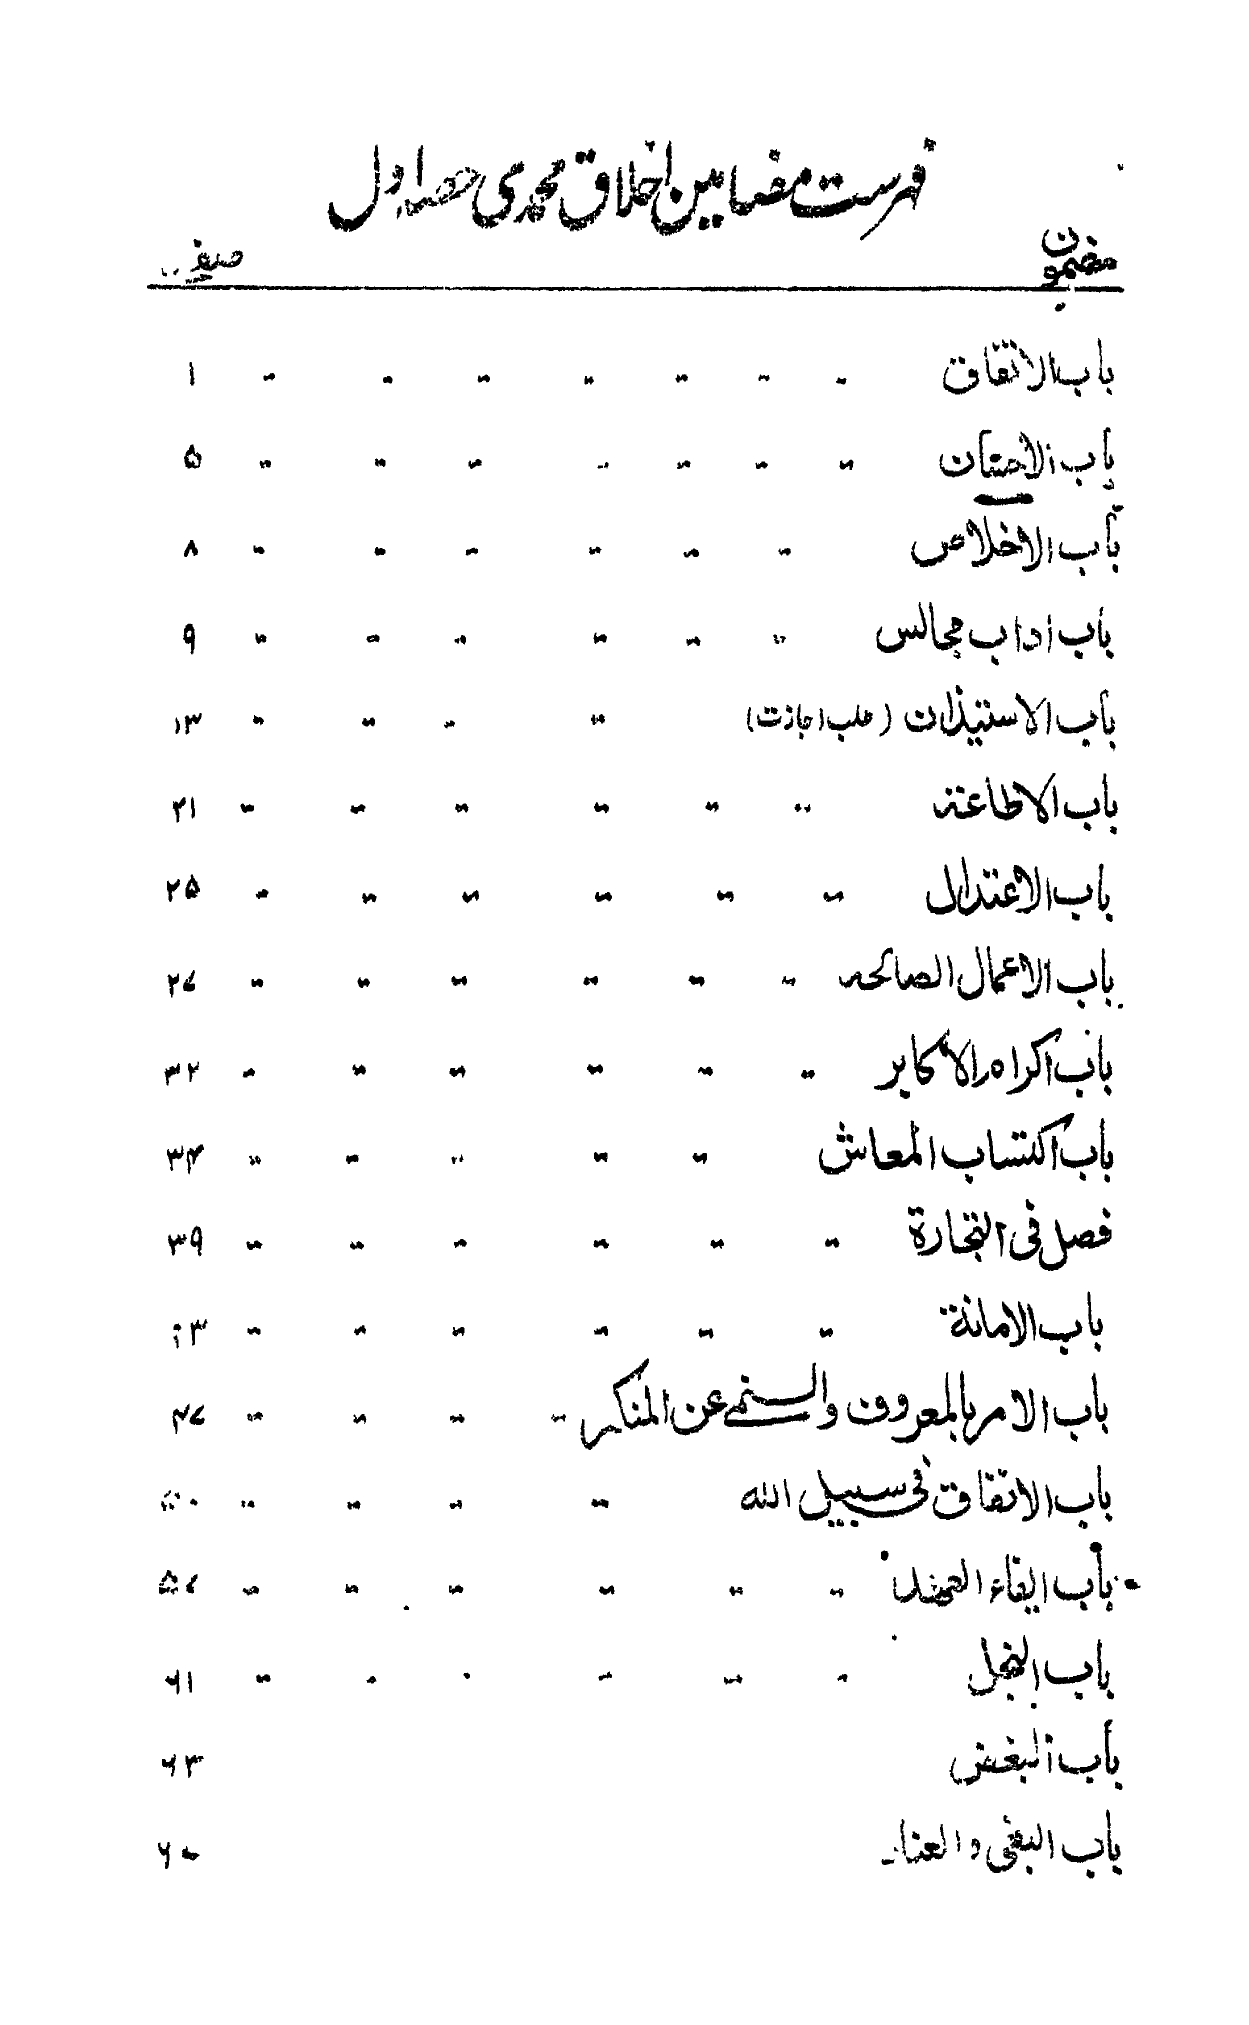 فہرست مضامین اخلاق محمدی حصہ اول
مضمون صفحہ
باب الاتفاق ۱
باب الاحسان ۵
باب الاخلاص ۸
باب آداب مجالس ۹
باب الاستیذان (طلب اجازت) ۱۳
باب الاطاعتہ ۲۱
باب الاعتدال ۲۵
باب الاعمال الصالحہ ۲۷
باب اکراہ الاکابر ۳۲
باب اکتساب المعاش ۳۴
فصل فی التجارة ۳۹
باب الامانة
باب الامر بالمعروف والنہی عن المنکر ۴۷
باب الانفاق فی سبیل اللہ ۵۰
باب ایفاء العہد ۵۷
باب البخل ۶۱
باب البغض ۶۳
باب البغی و العناد